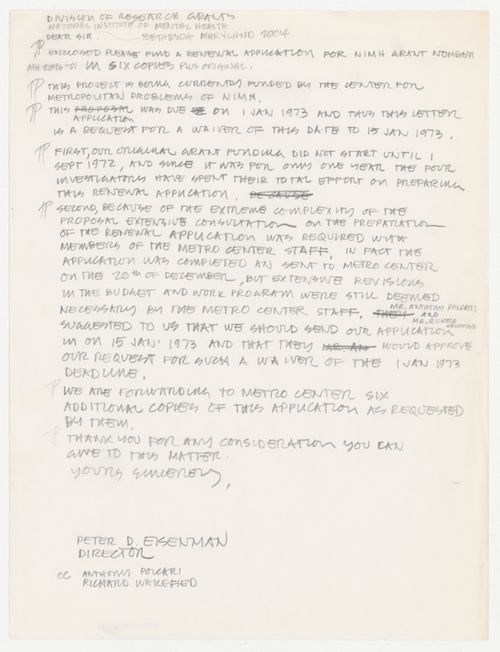 DIVISION OF RESEARCH GRANTS
NATIONAL INSTITUTE OF MENTAL HEALTH
DEAR SIR. BETHESDA MARYLAND 20014
ENCLOSED PLEASE FIND A RENEWAL APPLICATION FOR NIMH GRANT NUMBER
IN SIX COPIES PLUS ORIGINAL.
THIS PROJECT IS BEING CURRENTLY FUNDED BY THE CENTER FOR
METROPOLITAN PROBLEMS OF NIMH.
THIS PROPOSAL WAS DUE ON 1 JAN 1973 AND THUS THIS LETTER
APPLICATION
IS A REQUEST FOR A WAIVER OF THIS DATE TO 15 JAN 1973.
FIRST, OUR ORIGINAL GRANT FUNDING DID NOT START UNTIL 1
SEPT 1972, AND SINCE IT WAS FOR ONLY ONE YEAR THE FOUR
INVESTIGATORS HAVE SPENT THEIR TOTAL EFFORT ON PREPARING
THIS RENEWAL APPLICATION. BECAUSE
SECOND, BECAUSE OF THE EXTREME COMPLEXITY OF THE
PROPOSAL EXTENSIVE CONSULTATION ON THE PREPARATION
OF THE RENEWAL APPLICATION WAS REQUIRED WITH
MEMBERS OF THE METRO CENTER STAFF. IN FACT THE
APPLICATION WAS COMPLETED AN SENT TO METRO CENTER
ON THE 20TH OF DECEMBER, BUT EXTENSIVE REVISIONS
IN THE BUDGET AND WORK PROGRAM WERE STILL DEEMED
MR. ANTHONY POLCARI
NECESSARY BY THE METRO CENTER STAFF. THEY AND
MR. RICHARD WAKEFIELD
SUGGESTED TO US THAT WE SHOULD SEND OUR APPLICATION
IN ON 15 JAN' 1973 AND THAT THEY WOULD APPROVE
OUR REQUEST FOR SUCH A WAIVER OF THE 1 JAN 1973
DEADLINE.
WE ARE FORWARDING TO METRO CENTER SIX
ADDITIONAL COPIES OF THIS APPLICATION AS REQUESTED
BY THEM.
THANK YOU FOR ANY CONSIDERATION YOU CAN
GIVE TO THIS MATTER.
YOURS SINCERELY,
PETER D. EISENMAN
DIRECTOR
CC ANTHONY POLCARI
RICHARD WAKEFIELD